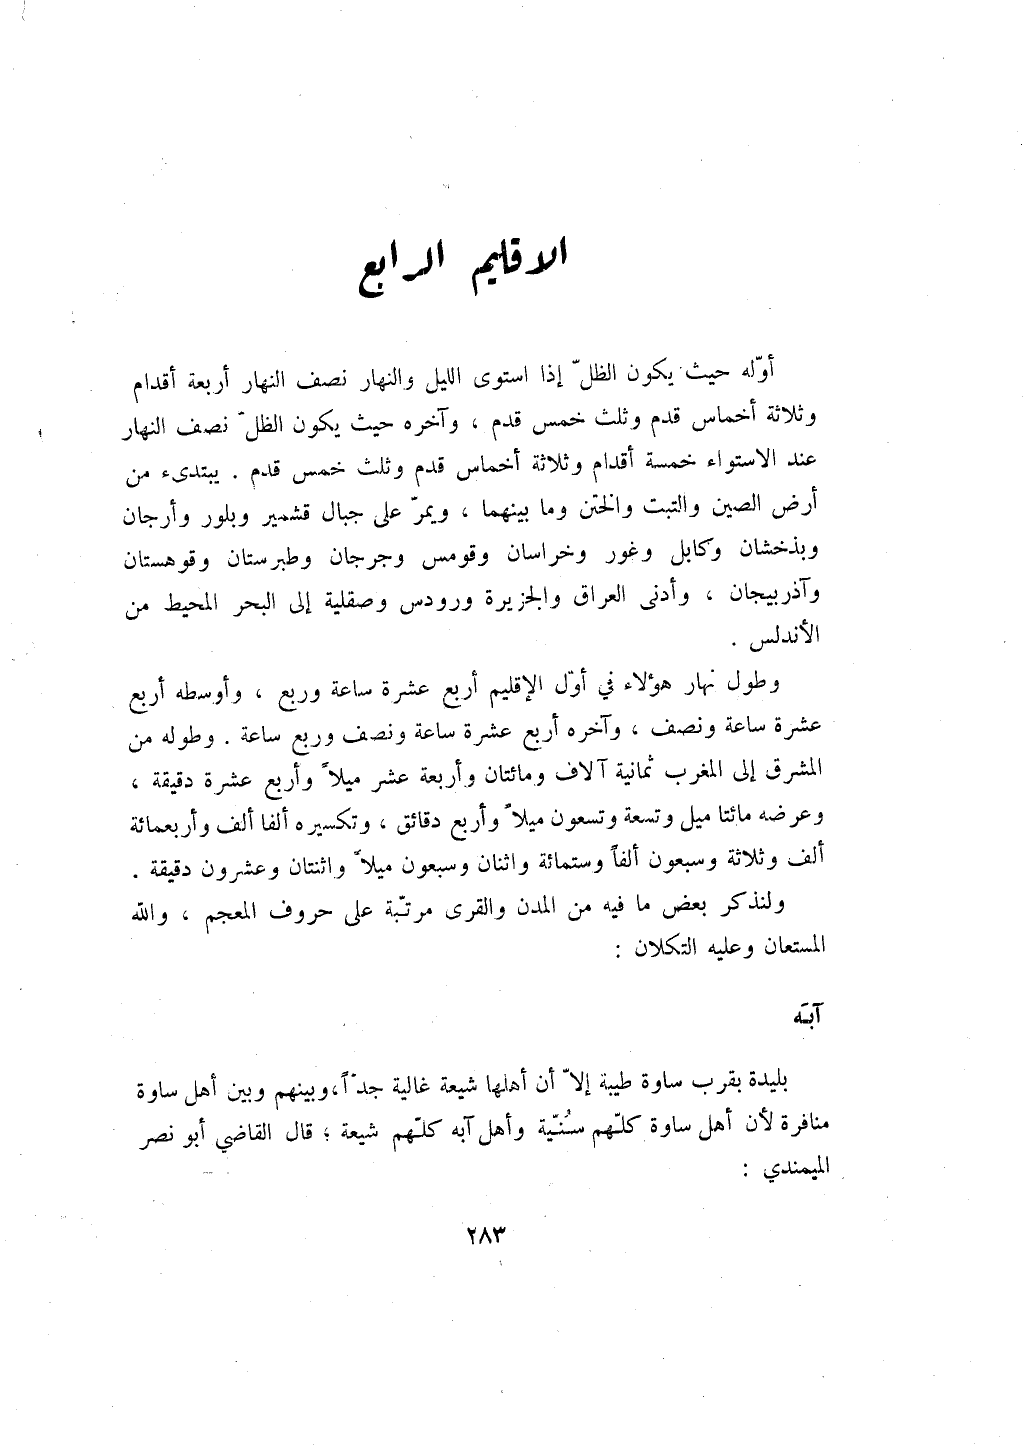 الاقليم الرابع
أوّله حيث يكون الظلّ إذا استوى الليل والنهار نصف النهار أربعة أقدام
وثلاثة أخماس قدم وثلث خمس قدم ، وآخره حيث يكون الظلّ نصف النهار
عند الاستواء خمسة أقدام وثلاثة أخماس قدم وثلث خمس قدم . يبتدىء من
أرض الصين والتبت والختن وما بينهما ، ويمرّ على جبال قشمير وبلور وأرجان
وبذخشان وكابل وغور وخراسان وقومس وجرجان وطبرستان وقوهستان
وآذربيجان ، وأدنى العراق والجزيرة ورودس وصقلية إلى البحر المحيط من
الأندلس .
وطول نهار هؤلاء في أوّل الإقليم أربع عشرة ساعة وربع ، وأوسطه أربع
عشرة ساعة ونصف ، وآخره أربع عشرة ساعة ونصف وربع ساعة . وطوله من
المشرق إلى المغرب ثمانية آلاف ومائتان وأربعة عشر ميلاً وأربع عشرة دقيقة ،
وعرضه مائتا ميل وتسعة وتسعون ميلاً وأربع دقائق ، وتكسيره ألفا ألف وأربعمائة
ألف وثلاثة وسبعون ألفاً وستمائة واثنان وسبعون ميلاً واثنتان وعشرون دقيقة .
ولنذكر بعض ما فيه من المدن والقرى مرتّبة على حروف المعجم ، والله
المستعان وعليه التكلان :
آبَه
بليدة بقرب ساوة طيبة إلاّ أن أهلها شيعة غالية جدّاً،وبينهم وبين أهل ساوة
منافرة لأن أهل ساوة كلّهم سُنّية وأهل آبه كلّهم شيعة ؛ قال القاضي أبو نصر
الميمندي :
٢٨٣